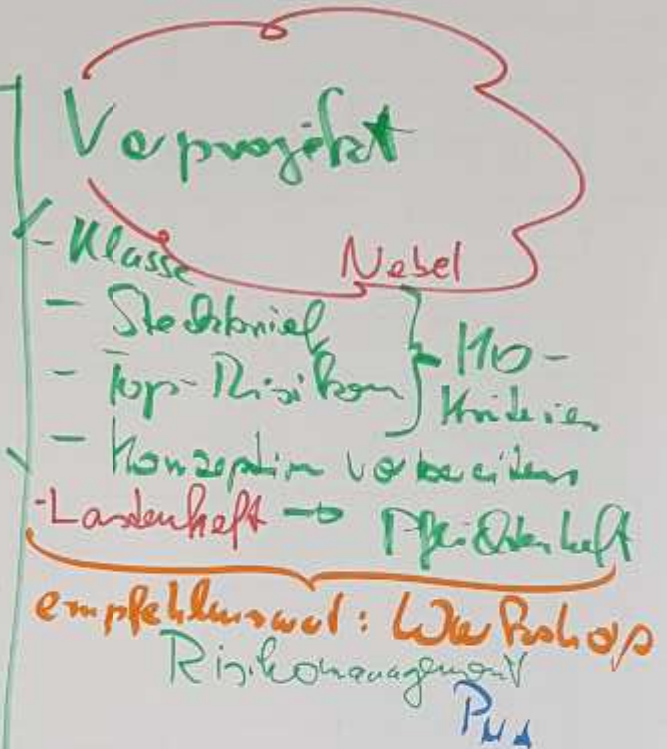 Vorprojekt
Nebel
- Klasse
- Steckbrief
- Top-Risiken
} KO-Kriterien
- Konzeption vorbereiten
- Lastenheft → Pflichtenheft
empfehlenswert: Workshop
Risikomanagement